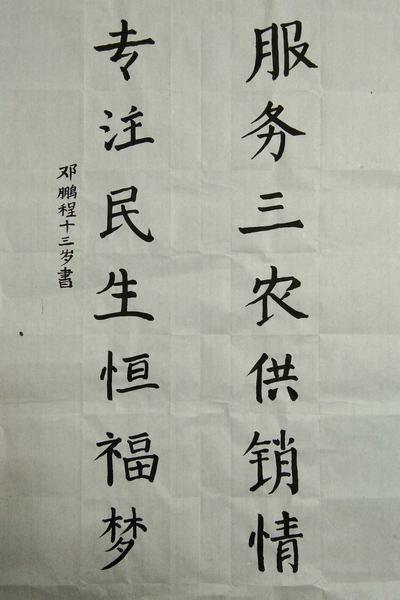 服务三农供销情
专注民生恒福梦
邓鹏程十三岁書